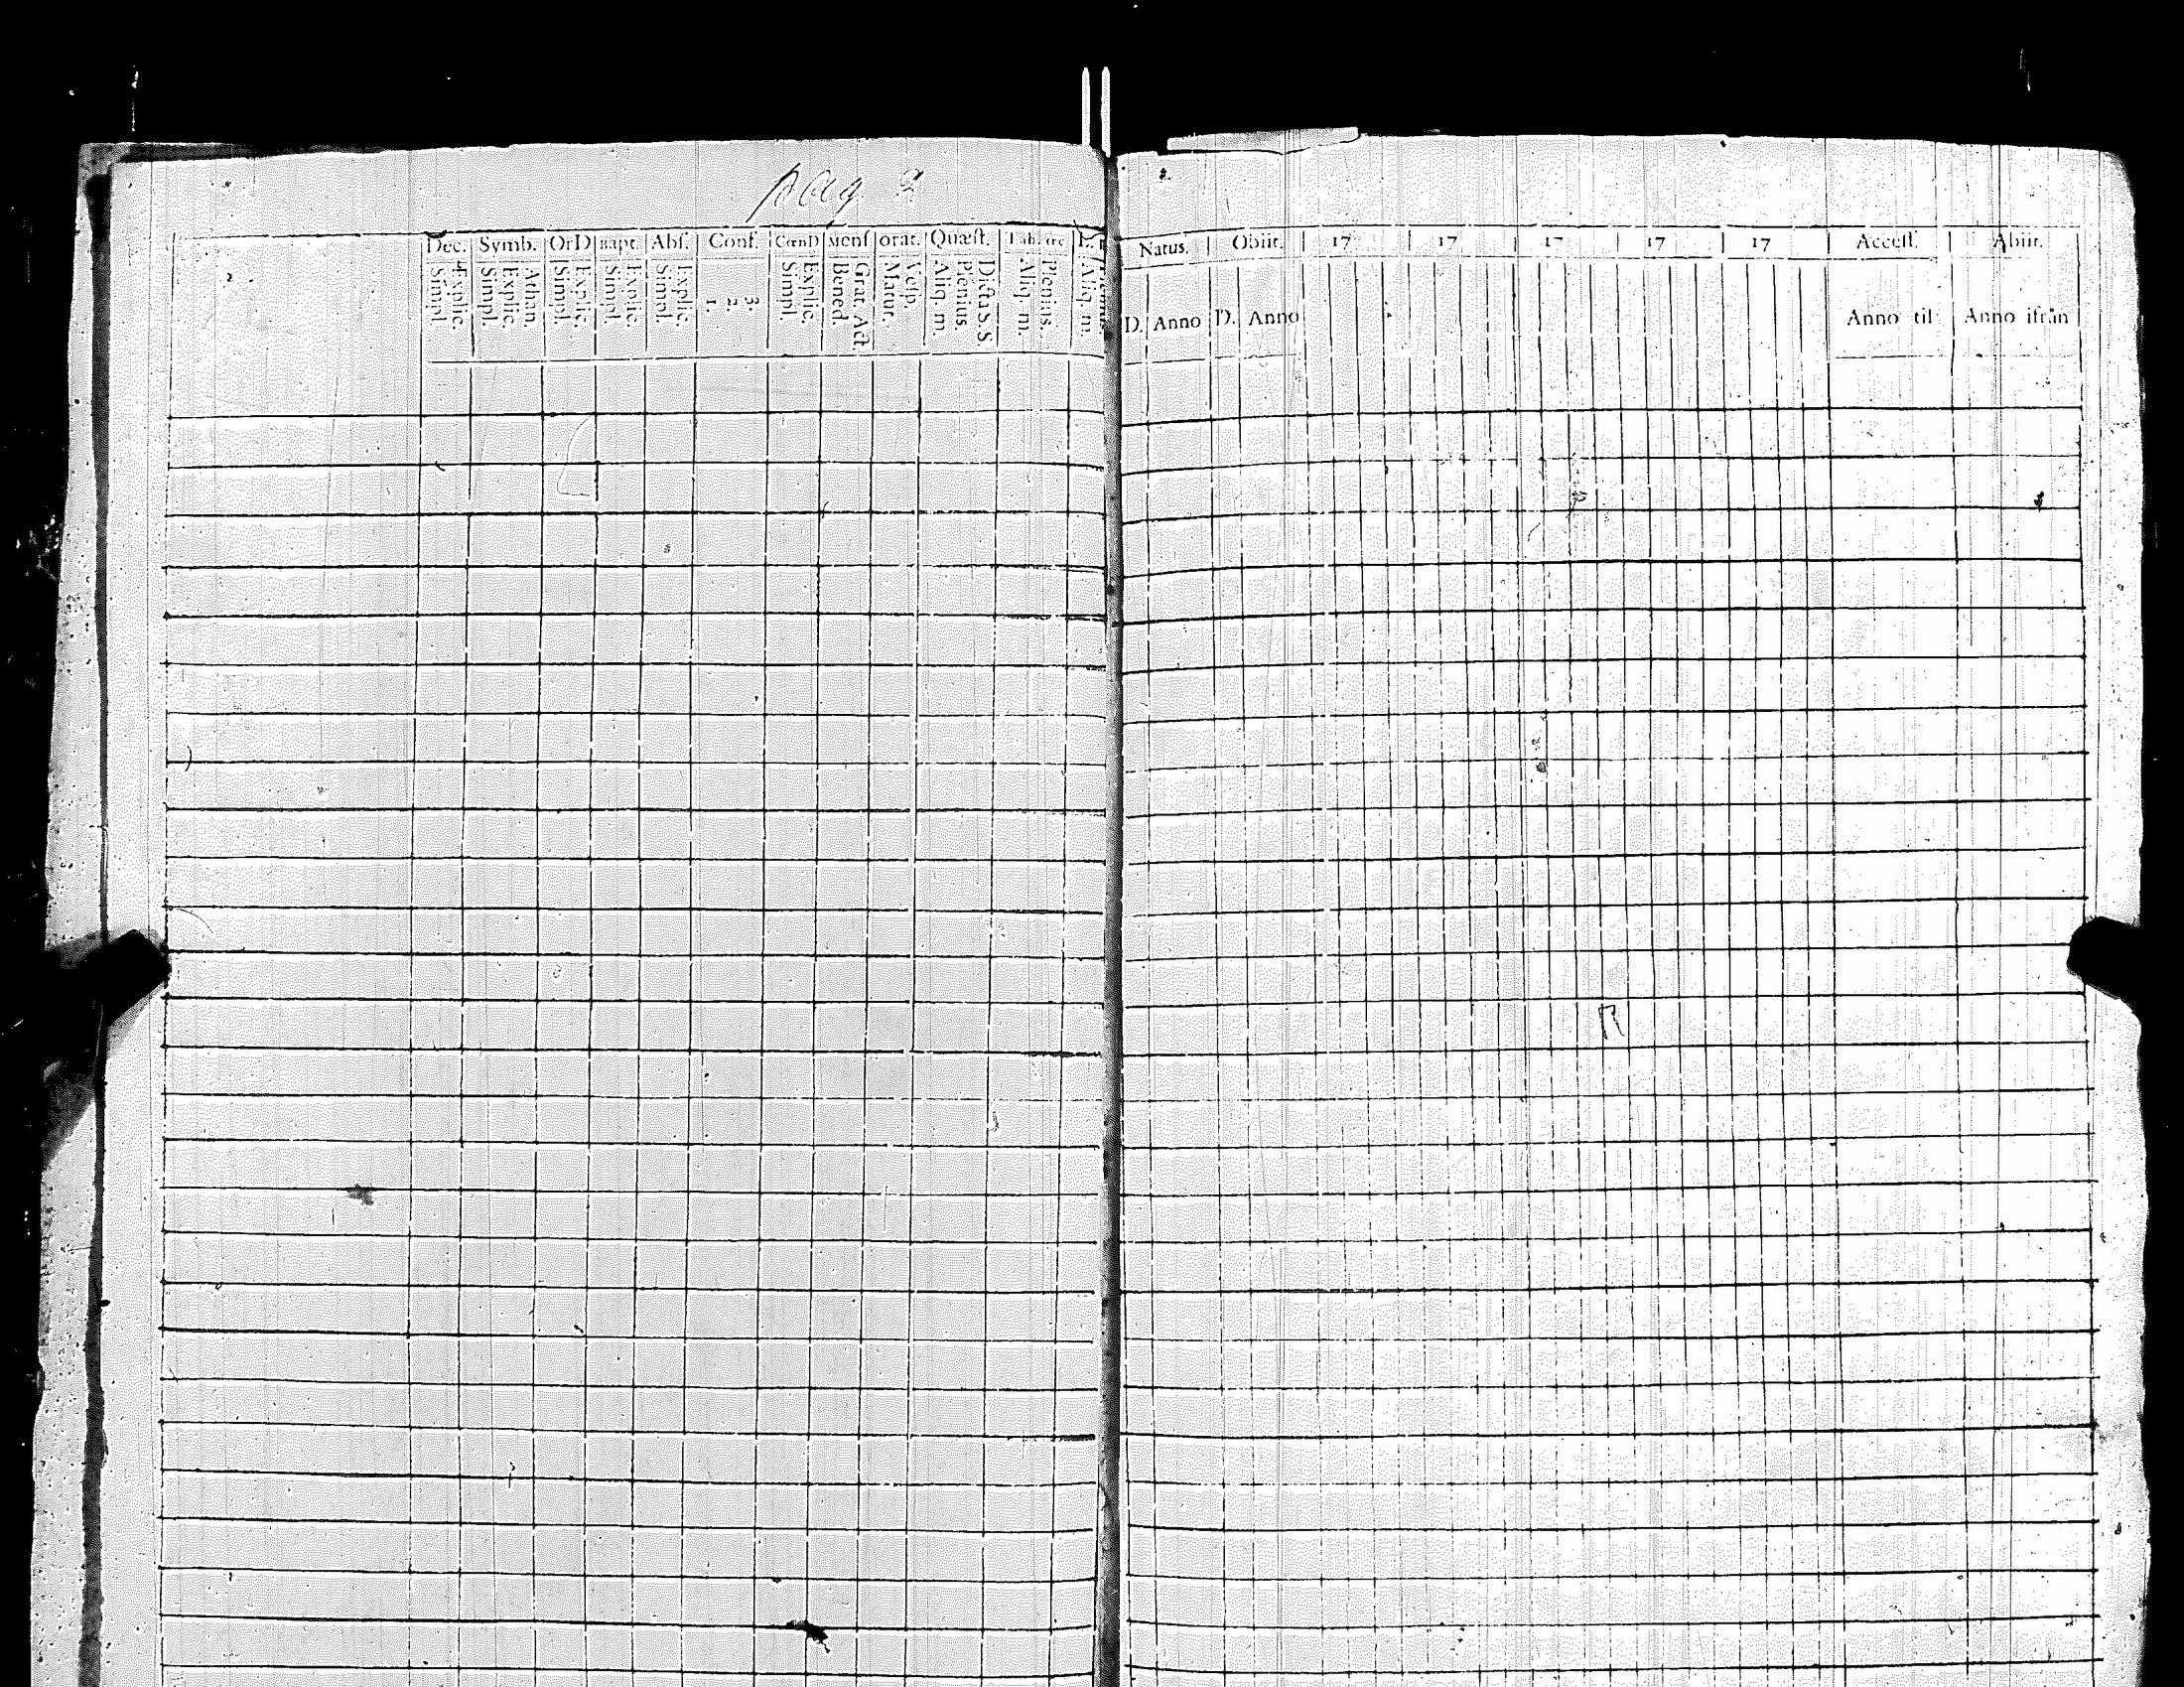 pag. 2
Dec. Symb. OrD Bapt. Abſ. Conf. CœnD Menſ orat. Quæſt.
Simpl. Explic. Simpl. Explic. Athan. Simpl. Explic. Simpl. Explic. Simpl. Explic. 1. 2. 3. Simpl. Explic. Bened. Grat. Act. Matut. Veſp. Aliq. m. Plenius Dicta S. S Aliq. m. Plenius. Aliq. m.
Natus. Obiit. 17 17 17 17 17 Acceſſ. Abiit.
D. Anno D. Anno Anno til Anno ifrån